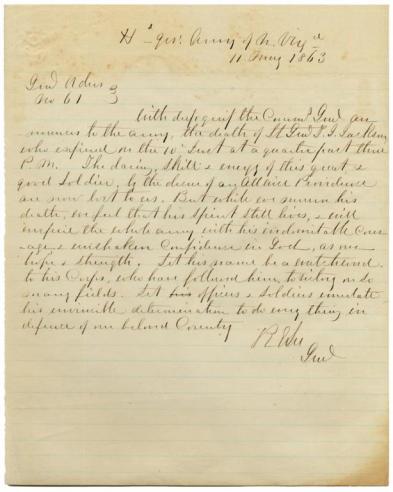 Hd qrs. Army of N. Virga
11 May 1863
Genl Orders
No 61
With deep grief the Commg Genl an-
nounces to the army, the death of Lt Genl T. J. Jackson
who expired on the 10 Inst at a quarter past three
P. M. The daring, skill & energy of this great &
good Soldier, by the decree of an Allwise Providence
are now lost to us. But while we mourn his
death, we feel that his spirit still lives, & will
inspire the whole army with his indomitable Cour-
age & unshaken Confidence in God, as our
hope & strength. Let his name be a watchword
to his Corps, who have followed him to victory on so
many fields. Let his officers & Soldiers emulate
his invincible determination to do every thing in
defence of our beloved Country
R E Lee
Genl